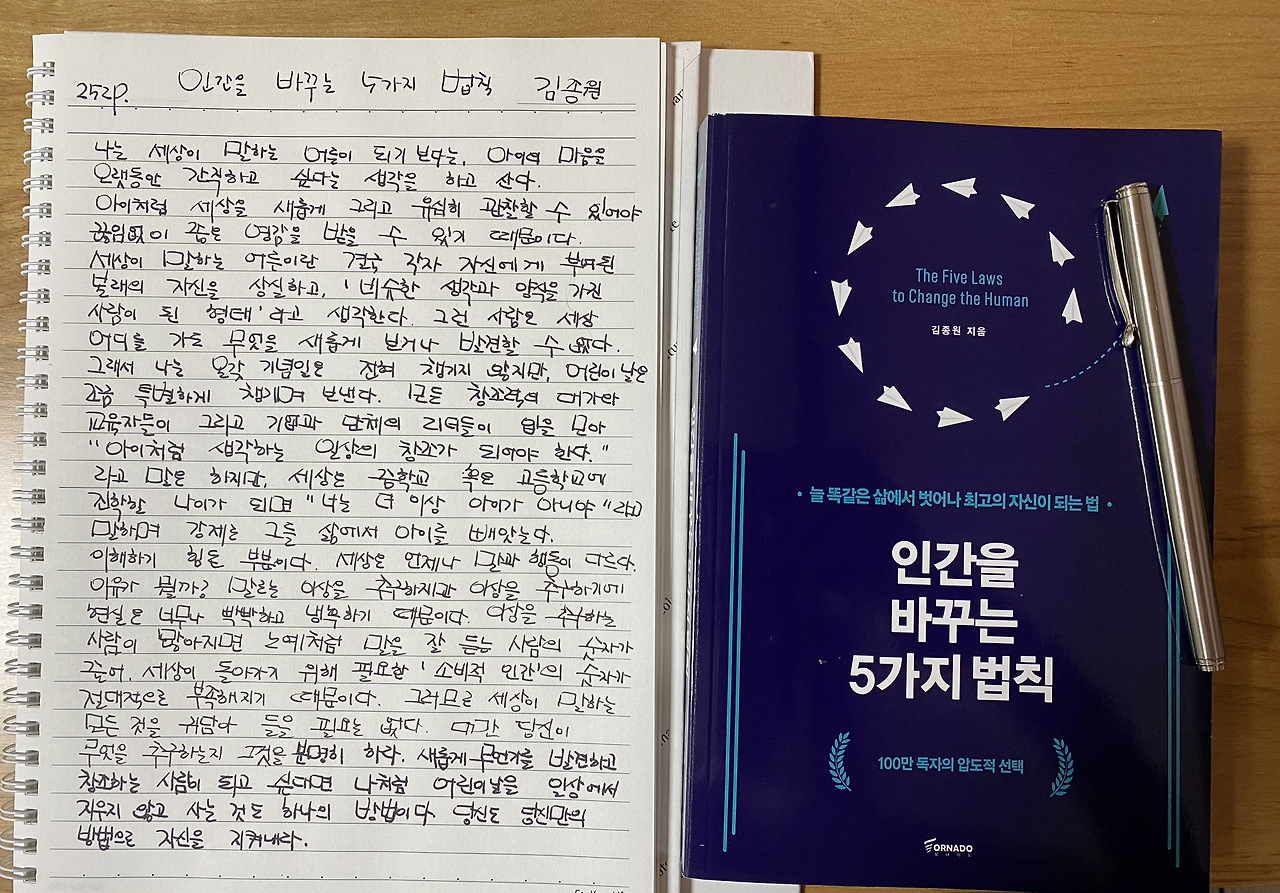 252p. 인간을 바꾸는 5가지 법칙 김종원
나는 세상이 말하는 어른이 되기 보다는, 아이의 마음을
오랫동안 간직하고 싶다는 생각을 하고 산다.
아이처럼 세상을 새롭게 그리고 유심히 관찰할 수 있어야
끊임없이 좋은 영감을 받을 수 있기 때문이다.
세상이 말하는 어른이란 결국 각자 자신에게 부여된
본래의 자신을 상실하고, '비슷한 생각과 양식을 가진
사람이 된 형태'라고 생각한다. 그런 사람은 세상
어디를 가도 무엇을 새롭게 보거나 발견할 수 없다.
그래서 나는 온갖 기념일은 전혀 챙기지 않지만, 어린이날은
조금 특별하게 챙기며 보낸다. 모든 창조력의 대가와
교육자들이 그리고 기업과 단체의 리더들이 입을 모아
"아이처럼 생각하는 일상의 창조가 되어야 한다."
라고 말은 하지만, 세상은 중학교 혹은 고등학교에
진학할 나이가 되면 "너는 더 이상 아이가 아니야"라고
말하며 강제로 그들 삶에서 아이를 빼앗는다.
이해하기 힘든 부분이다. 세상은 언제나 말과 행동이 다르다.
이유가 뭘까? 말로는 이상을 추구하지만 이상을 추구하기에
현실은 너무나 빡빡하고 냉혹하기 때문이다. 이상을 추구하는
사람이 많아지면 노예처럼 말을 잘 듣는 사람의 숫자가
줄어, 세상이 돌아가기 위해 필요한 '소비적 인간'의 숫자가
절대적으로 부족해지기 때문이다. 그러므로 세상이 말하는
모든 것을 귀담아 들을 필요는 없다. 다만 당신이
무엇을 추구하는지 그것을 분명히 하라. 새롭게 무언가를 발견하고
창조하는 사람이 되고 싶다면 나처럼 어린이날을 일상에서
지우지 않고 사는 것도 하나의 방법이다. 당신도 당신만의
방법으로 자신을 지켜내라.
The Five Laws
to Change the Human
김종원 지음
• 늘 똑같은 삶에서 벗어나 최고의 자신이 되는 법 •
인간을
바꾸는
5가지 법칙
100만 독자의 압도적 선택
TORNADO
토네이도